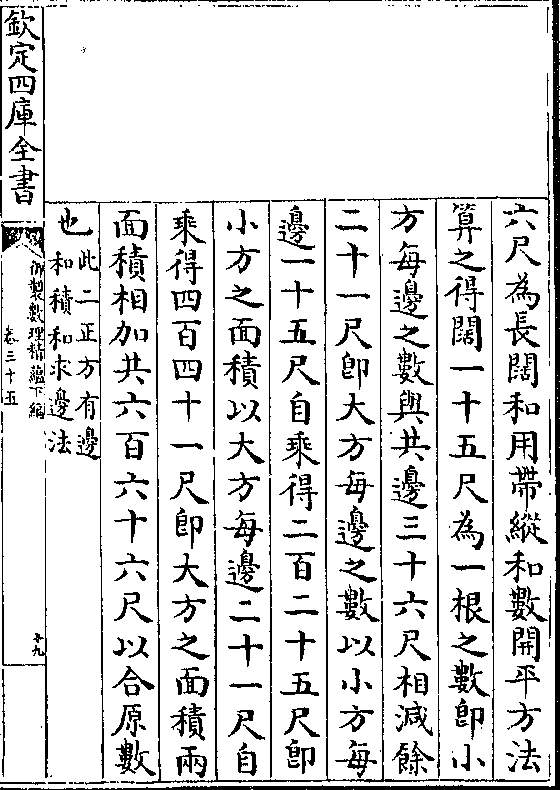 六尺為長闊和用帶縱和數開平方法
算之得闊一十五尺為一根之數卽小
方每邊之數與共邊三十六尺相減餘
二十一尺卽大方每邊之數以小方每
邊一十五尺自乘得二百二十五尺卽
小方之面積以大方每邊二十一尺自
乘得四百四十一尺卽大方之面積兩
面積相加共六百六十六尺以合原數
也此二正方有邊
和積和求邊法
欽定四庫全書
御製數理精蘊下編
卷三十五
十九